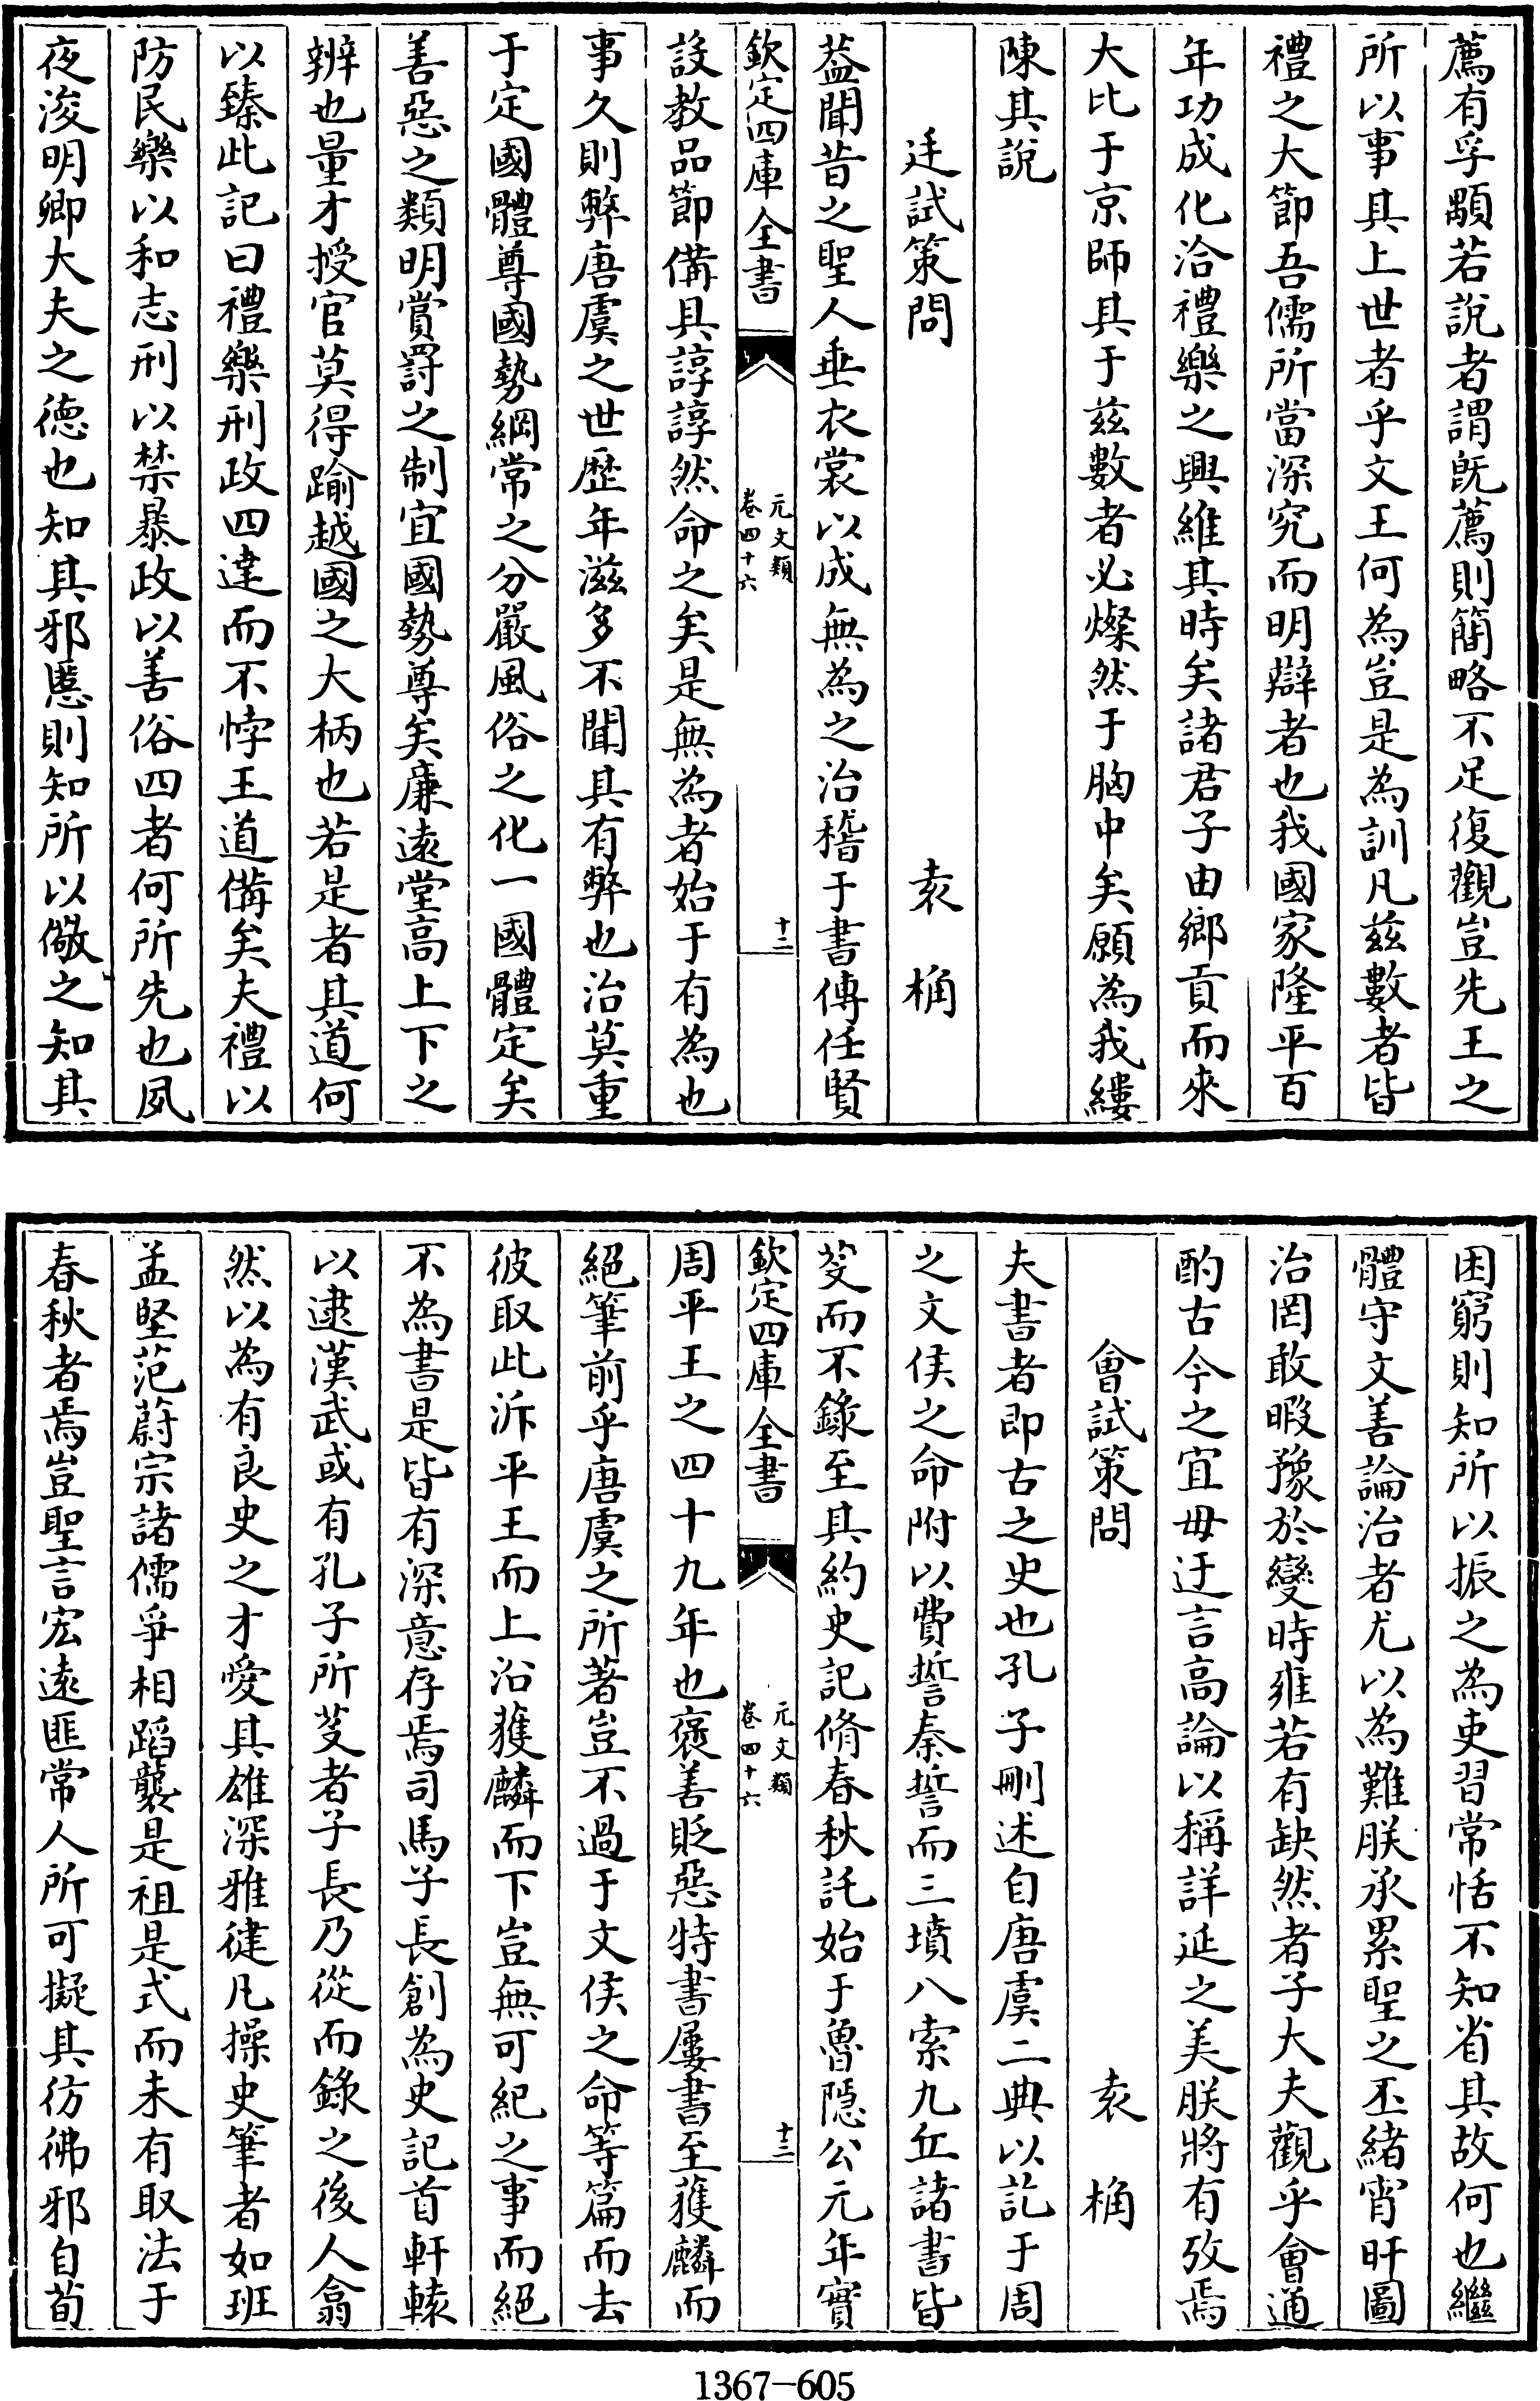 薦有孚顒若說者謂既薦則簡略不足復觀豈先王之
所以事其上世者乎文王何為豈是為訓凡茲數者皆
禮之大節吾儒所當深究而明辯者也我國家隆平百
年功成化洽禮樂之興維其時矣諸君子由鄉貢而來
大比于京師其于茲數者必燦然于胸中矣願為我縷
陳其說
廷試策問 袁桷
葢聞昔之聖人垂衣裳以成無為之治稽于書傳任賢
欽定四庫全書 元文類 卷四十六 十二
設教品節備具諄諄然命之矣是無為者始于有為也
事久則弊唐虞之世歴年滋多不聞其有弊也治莫重
于定國體尊國勢綱常之分嚴風俗之化一國體定矣
善惡之類明賞罰之制宜國勢尊矣廉遠堂高上下之
辨也量才授官莫得踰越國之大柄也若是者其道何
以臻此記曰禮樂刑政四達而不悖王道備矣夫禮以
防民樂以和志刑以禁暴政以善俗四者何所先也夙
夜浚明卿大夫之德也知其邪慝則知所以儆之知其
困窮則知所以振之為吏習常恬不知省其故何也繼
體守文善論治者尤以為難朕承累聖之丕緒宵旰圖
治罔敢暇豫於變時雍若有缺然者子大夫觀乎會通
酌古今之宜毋迂言高論以稱詳延之美朕將有攷焉
會試策問 袁桷
夫書者即古之史也孔子刪述自唐虞二典以訖于周
之文侯之命附以費誓秦誓而三墳八索九丘諸書皆
芟而不錄至其約史記脩春秋託始于魯隱公元年實
欽定四庫全書 元文類 卷四十六 十三
周平王之四十九年也褒善貶惡特書屢書至獲麟而
絕筆前乎唐虞之所著豈不過于文侯之命等篇而去
彼取此泝平王而上沿獲麟而下豈無可紀之事而絕
不為書是皆有深意存焉司馬子長創為史記首軒轅
以逮漢武或有孔子所芟者子長乃從而錄之後人翕
然以為有良史之才愛其雄深雅健凡操史筆者如班
孟堅范蔚宗諸儒爭相蹈襲是祖是式而未有取法于
春秋者焉豈聖言宏遠匪常人所可擬其彷彿邪自荀
1367-605